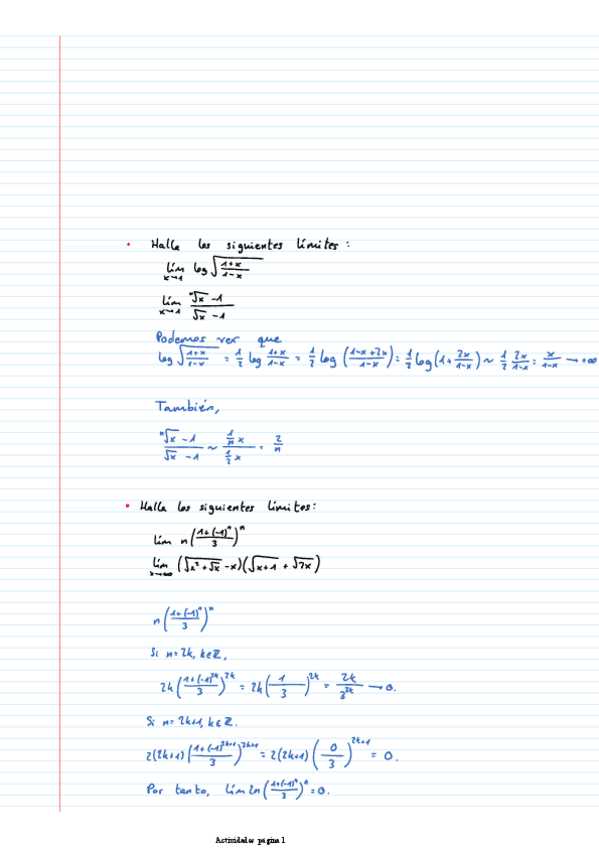 • Halla los siguientes límites:
lím x→1 log √((1+x)/(1-x))
lím x→1 (ⁿ√x -1)/(√x -1)
Podemos ver que
log √((1+x)/(1-x)) = 1/2 log (1+x)/(1-x) = 1/2 log ((1-x+2x)/(1-x)) = 1/2 log(1+ 2x/(1-x)) ~ 1/2 2x/(1-x) = x/(1-x) → +∞
También,
(ⁿ√x -1)/(√x -1) ~ (1/n x)/(1/2 x) = 2/n
• Halla los siguientes límites:
lím n((1+(-1)ⁿ)/3)ⁿ
lím x→+∞ (√(x²+√x) -x)(√(x+1) + √(7x))
n((1+(-1)ⁿ)/3)ⁿ
Si n=2k, k∈ℤ,
2k((1+(-1)^2k)/3)^2k = 2k(1/3)^2k = 2k/3^2k → 0.
Si n=2k+1, k∈ℤ.
2(2k+1)((1+(-1)^2k+1)/3)^2k+1 = 2(2k+1)(0/3)^2k+1 = 0.
Por tanto, lím 2n((1+(-1)ⁿ)/3)ⁿ = 0.
Actividades página 1